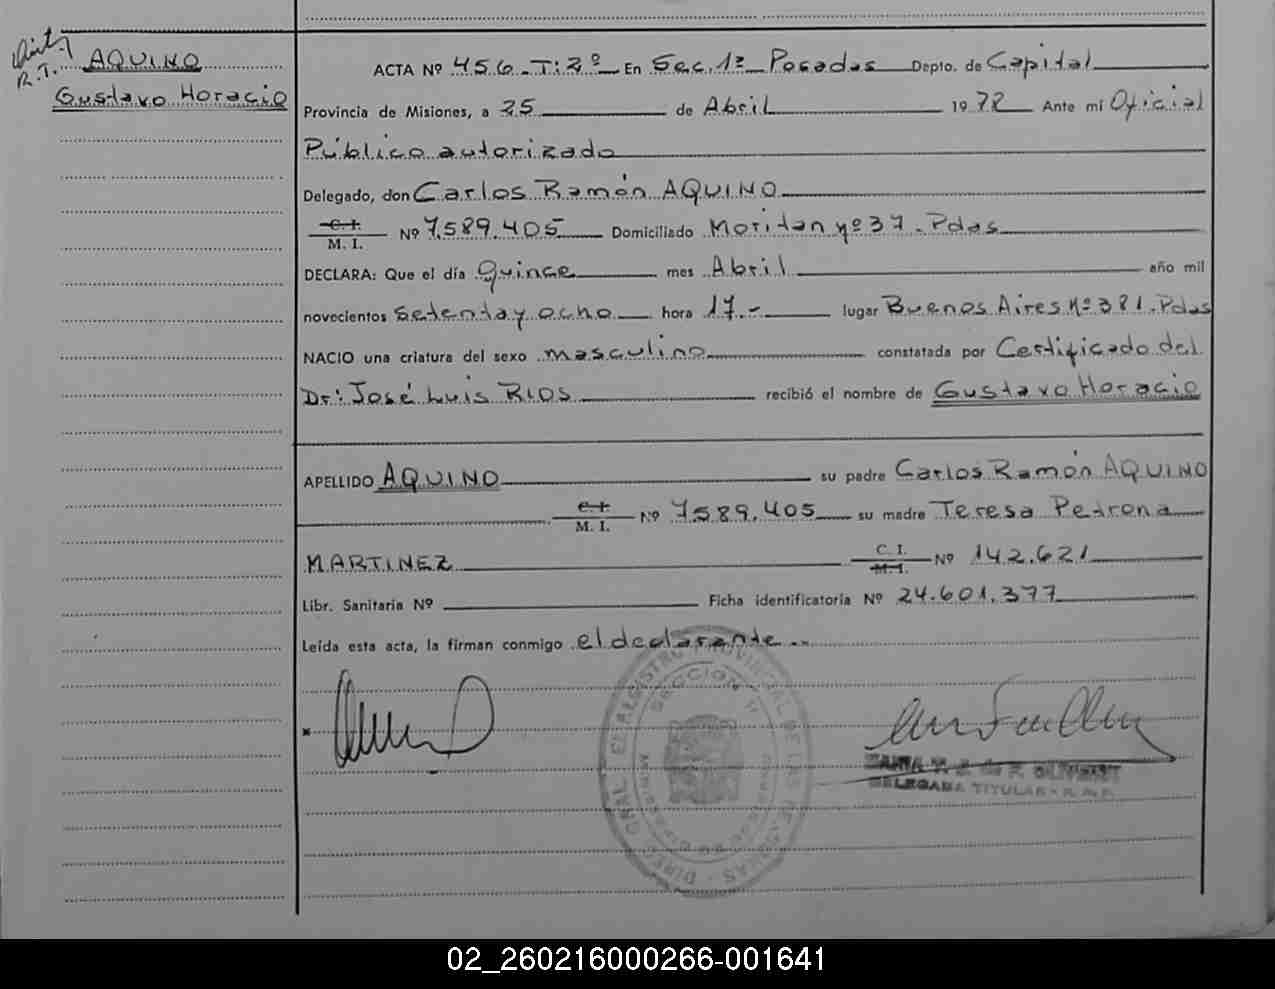 R.T.
AQUINO
Gustavo Horacio
ACTA Nº 456 T: 2º En Sec. 1ª Posadas Depto. de Capital
Provincia de Misiones, a 25 de Abril 1978 Ante mí Oficial
Público autorizado
Delegado, don Carlos Ramón AQUINO
C. I.
M. I. Nº 7.589.405 Domiciliado Nº 37 - Pdas
DECLARA: Que el día Quince mes Abril año mil
novecientos setenta y ocho hora 17.- lugar Buenos Aires Nº 381 - Pdas
NACIO una criatura del sexo masculino constatada por Certificado del
Dr: José Luis RIOS recibió el nombre de Gustavo Horacio
APELLIDO AQUINO su padre Carlos Ramón AQUINO
C. I.
M. I. Nº 7.589.405 su madre Teresa Petrona
MARTINEZ C. I.
M. I. Nº 142.621
Libr. Sanitaria Nº Ficha identificatoria Nº 24.601.377
Leída esta acta, la firman conmigo el declarante
DELEGADA TITULAR
02_260216000266-001641